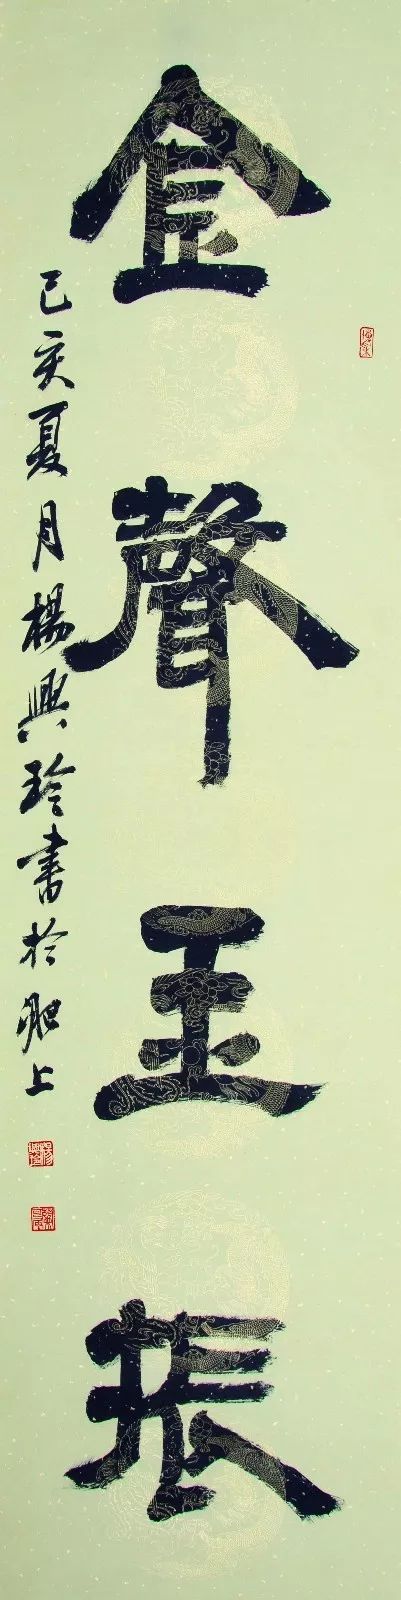 金聲玉振
己亥夏月楊興玲書於肥上